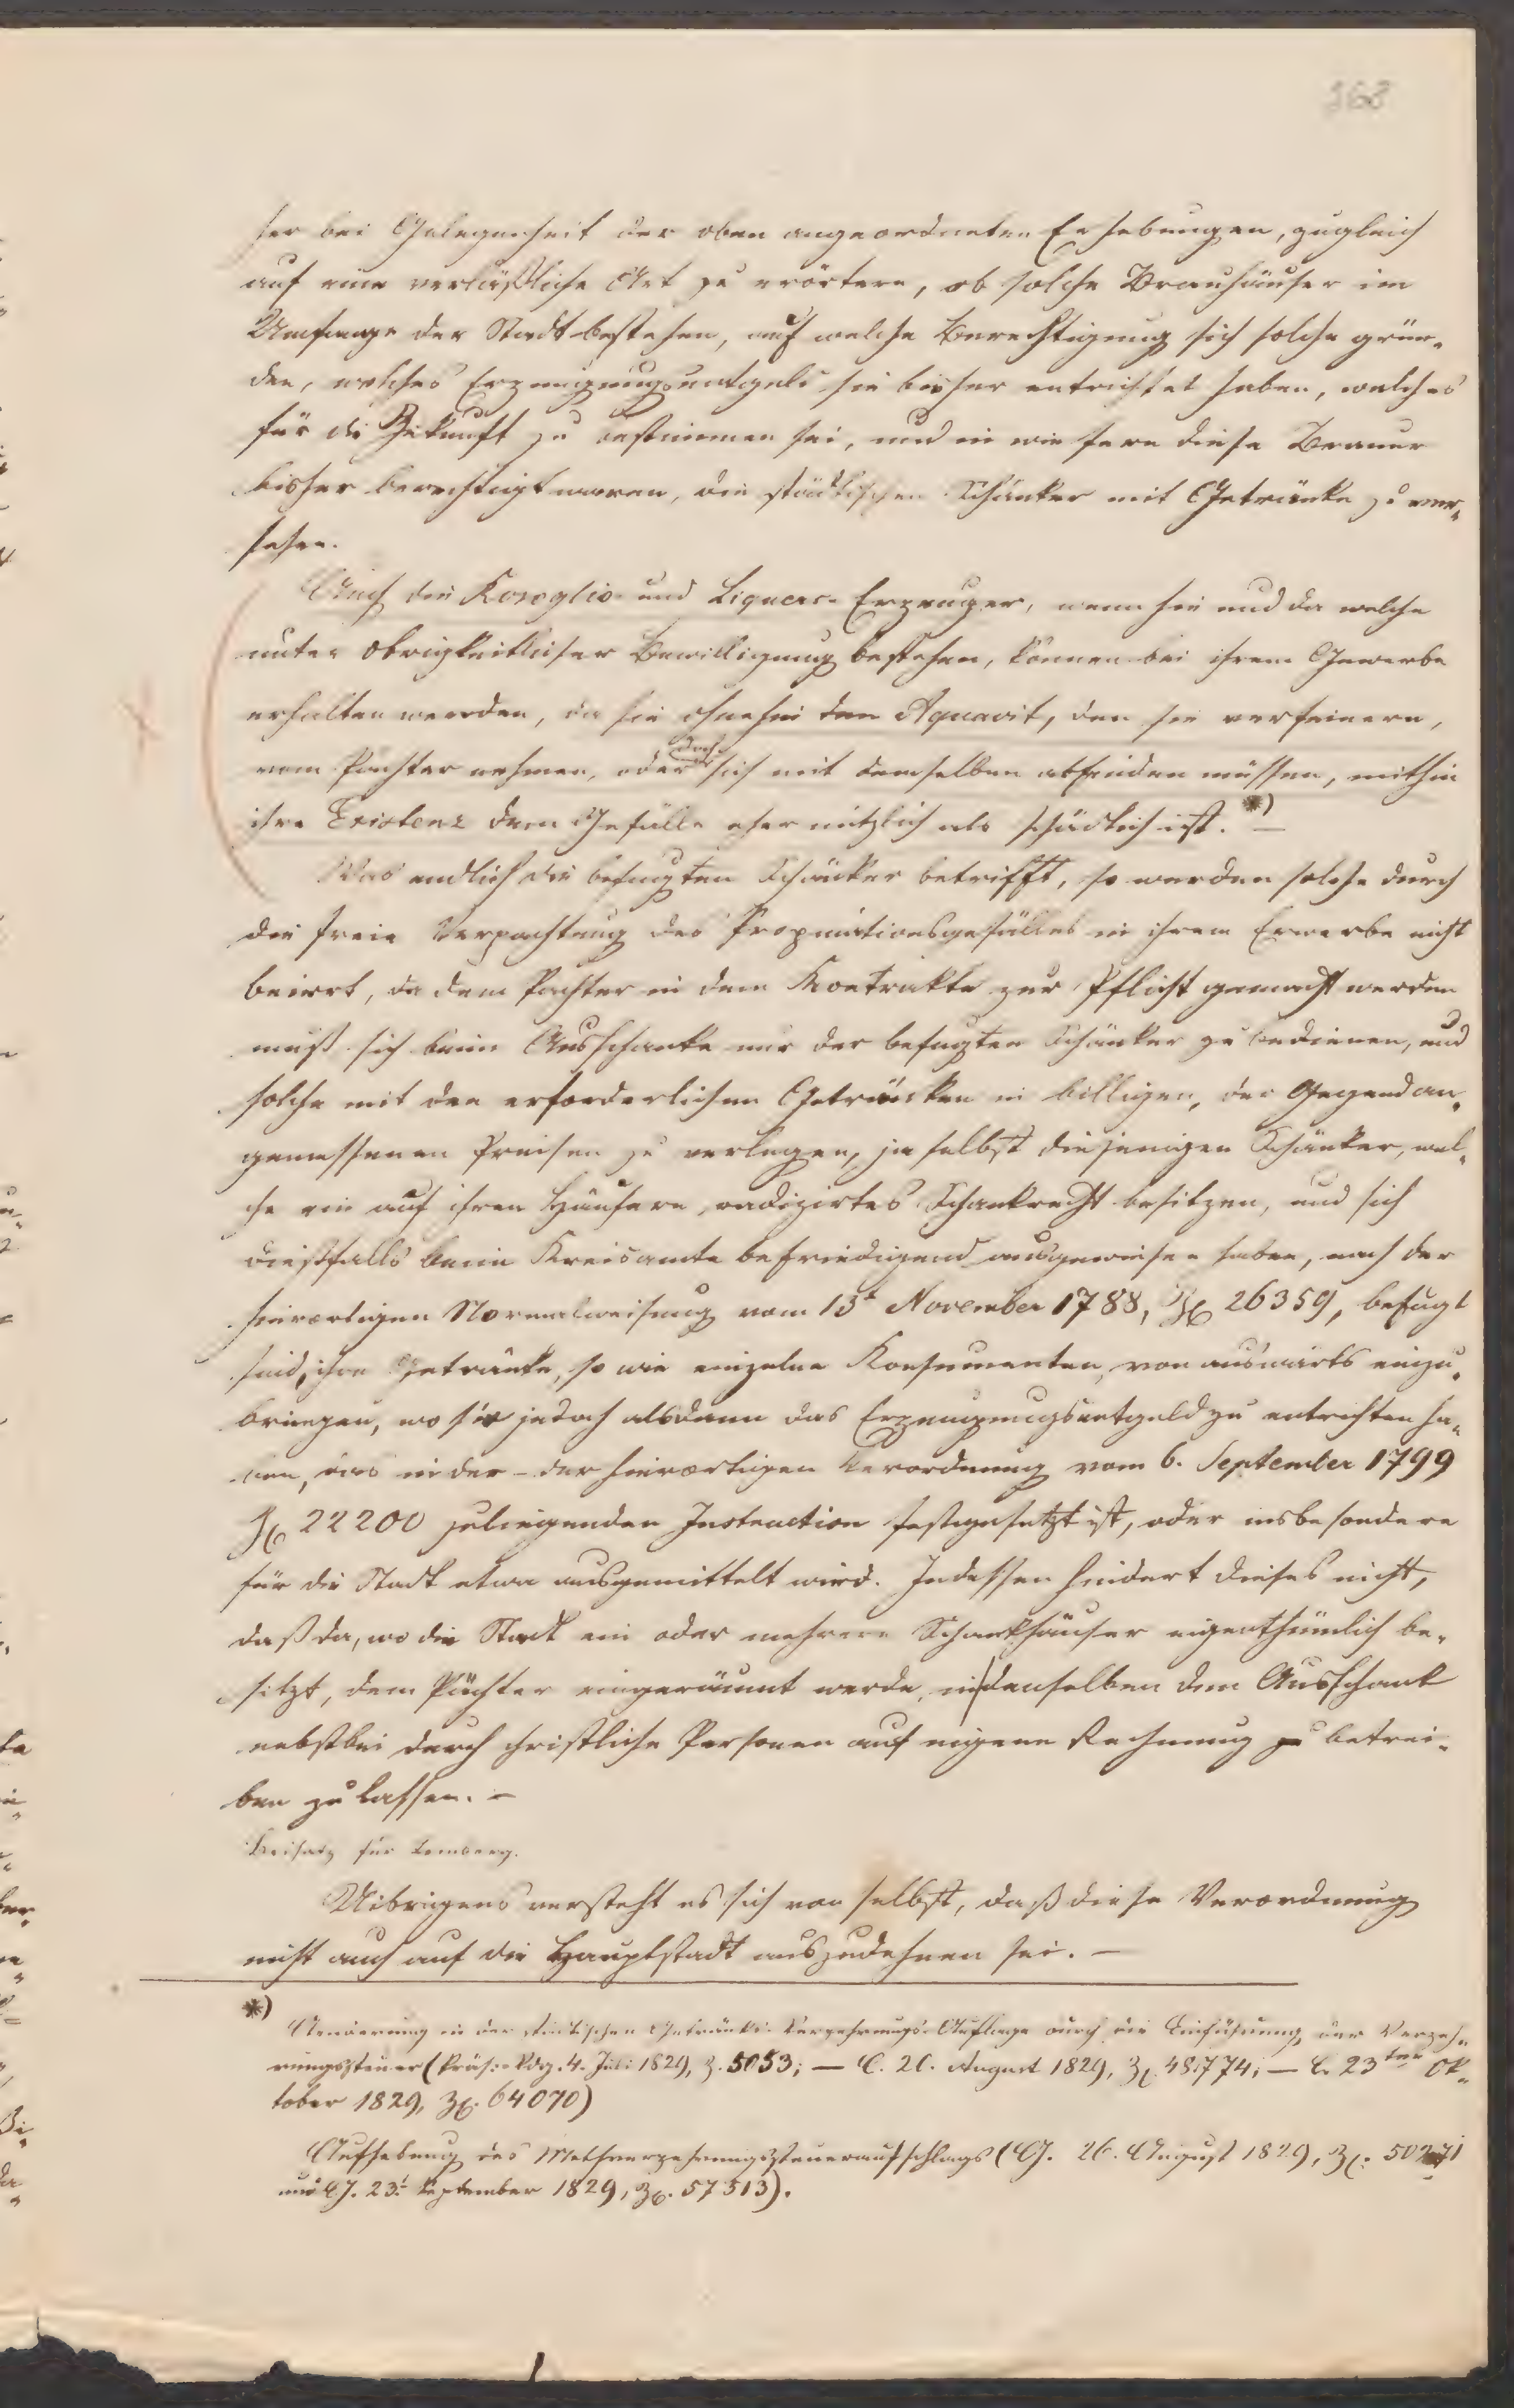 368
her bei Gelegenheit der oben angeordneten Erhebungen, zugleich
auf eine verläßliche Art zu erörtern, ob solche Brauhäuser im
Umfange der Stadt bestehen, auf welche Berechtigung sich solche grün-
den, welches Erzeugungsentgeld sie bisher entrichtet haben, welches
für die Zukunft zu bestimmen sei, und in wie fern diese Brauer
bisher berechtigt waren, die städtischen Schänker mit Getränke zu ver-
sehen.
Auch die Rosoglio- und Liqueur-Erzeuger, wenn hie und da welche
unter obrigkeitlicher Bewilligung bestehen, können bei ihrem Gewerbe
erhalten werden, da sie ohnehin den Aquavit, den sie verfeinern,
vom Pächter nehmen, oder doch sich mit demselben abfinden müssen, mithin
ihre Existenz dem Gefälle eher nützlich als schädlich ist. *) —
Was endlich die befugten Schänker betrifft, so werden solche durch
die freie Verpachtung des Propinationsgefälles in ihrem Erwerbe nicht
beirrt, da dem Pachter in dem Kontrakte zur Pflicht gemacht werden
muß sich beim Ausschanke nur der befugten Schänker zu bedienen, und
solche mit den erforderlichen Getränken in billigen, der Gegend an-
gemessenen Preisen zu verlegen, ja selbst diejenigen Schänker, wel-
che ein auf ihren Häusern radizirtes Schankrecht besitzen, und sich
dießfalls beim Kreisamte befriedigend ausgewiesen haben, nach der
hierortigen Normalweisung vom 13t November 1788, Zl 26359, befugt
sind, ihre Getränke, so wie einzelne Konsumenten, von auswärts einzu-
bringen, wo sie jedoch alsdann das Erzeugungsentgeld zu entrichten ha-
ben, das in der – der hierortigen Verordnung vom 6. September 1799
Zl 22200 zuliegenden Instruction festgesetzt ist, oder insbesondere
für die Stadt etwa ausgemittelt wird. Indessen hindert dieses nicht,
daß da, wo die Stadt ein oder mehrere Schankhäuser eigenthümlich be-
sitzt, dem Pächter eingeräumt werde, in denselben den Ausschank
nebstbei durch christliche Personen auf eigene Rechnung zu betrei-
ben zu lassen. –
Beisatz für Lemberg.
Uibrigens versteht es sich von selbst, daß diese Verordnung
nicht auch auf die Hauptstadt auszudehnen sei. —
*) Aenderung in der städtischen Getränks-Verzehrungs-Auflage durch die Einführung der Verzeh-
rungssteuer (Präs: Vdg. 4. Juli 1829, Z. 5053; — 20. August 1829, Zl. 48774; — 23ten Ok-
tober 1829, Zl. 64070)
Aufhebung des Methverzehrungssteueraufschlags (G. 26. August 1829, Zl. 50271
und G. 23t September 1829, Zl. 57513).